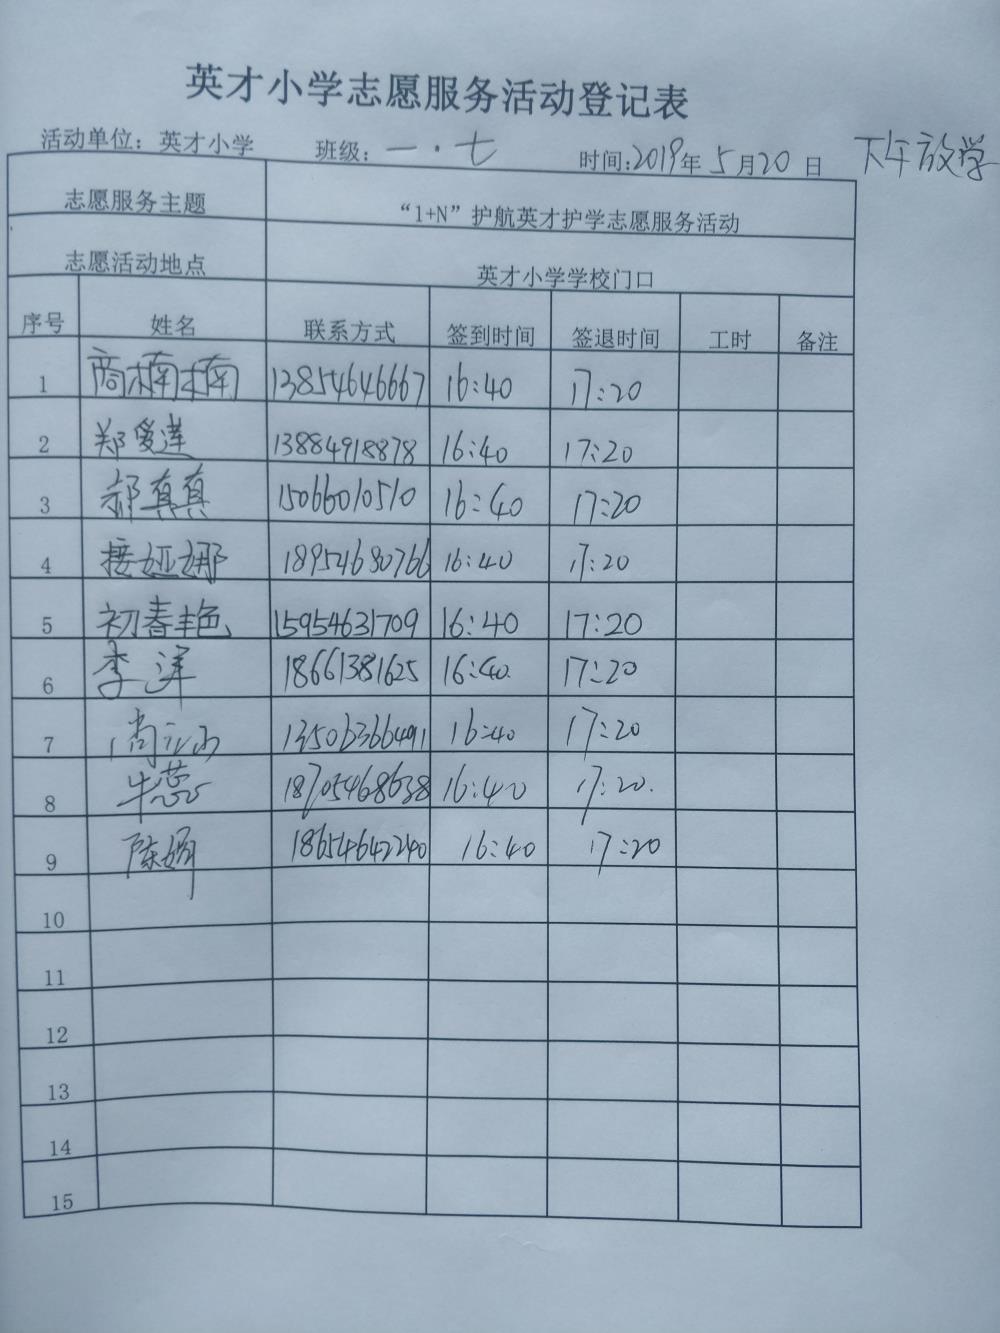 英才小学志愿服务活动登记表
活动单位：英才小学 班级：一·七 时间:2019年5月20日 下午放学
志愿服务主题 “1+N”护航英才护学志愿服务活动
志愿活动地点 英才小学学校门口
序号 姓名 联系方式 签到时间 签退时间 工时 备注
1 商楠楠 13854646667 16:40 17:20
2 郑爱莲 13884918878 16:40 17:20
3 郝真真 15066010510 16:40 17:20
4 接娅娜 18954680766 16:40 17:20
5 初春艳 15954631709 16:40 17:20
6 李洋 18661381625 16:40. 17:20
7 13506366491 16:40 17:20
8 牛蕊 18705468638 16:40 17:20.
9 陈娟 18654642240 16:40 17:20
10
11
12
13
14
15